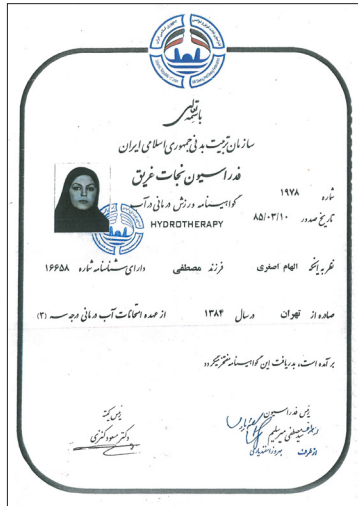 باسمه تعالی
سازمان تربیت بدنی جمهوری اسلامی ایران
فدراسیون نجات غریق
گواهینامه ورزش درمانی در آب
HYDROTHERAPY
شماره ۱۹۷۸
تاریخ صدور ۸۵/۰۳/۱۰
نظر به اینکه الهام اصغری فرزند مصطفی دارای شناسنامه شماره ۱۶۶۵۸
صادره از تهران در سال ۱۳۸۴ از عهده امتحانات آب درمانی درجه سه (۳)
برآمده است، بدریافت این گواهینامه مفتخر میگردد
رئیس فدراسیون
رئیس کمیته
دکتر مسعود کنزی
از طرف